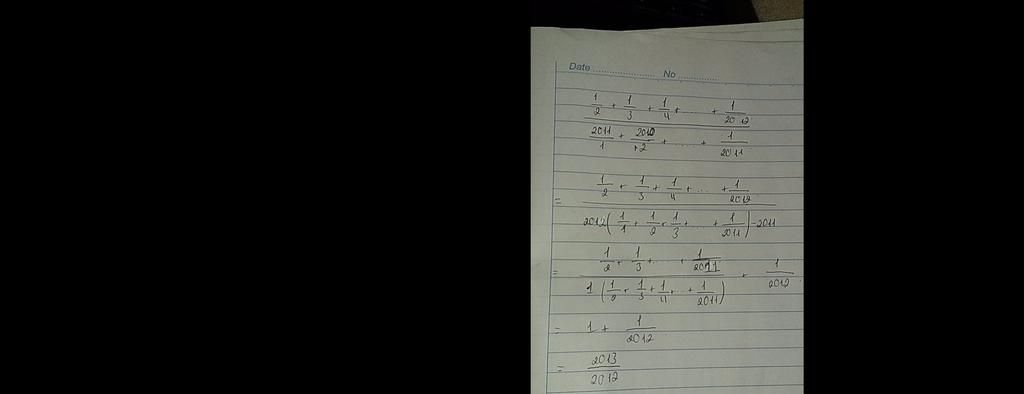 Date ........................ No ................
1/2 + 1/3 + 1/4 + .... + 1/2012
2011/1 + 2010/2 + .... + 1/2011
= 1/2 + 1/3 + 1/4 + ... + 1/2012
2012(1/1 + 1/2 + 1/3 + .... + 1/2011) - 2011
= 1/2 + 1/3 + ... + 1/2011 + 1/2012
1 (1/2 + 1/3 + 1/4 + .. + 1/2011)
= 1 + 1/2012
= 2013/2012